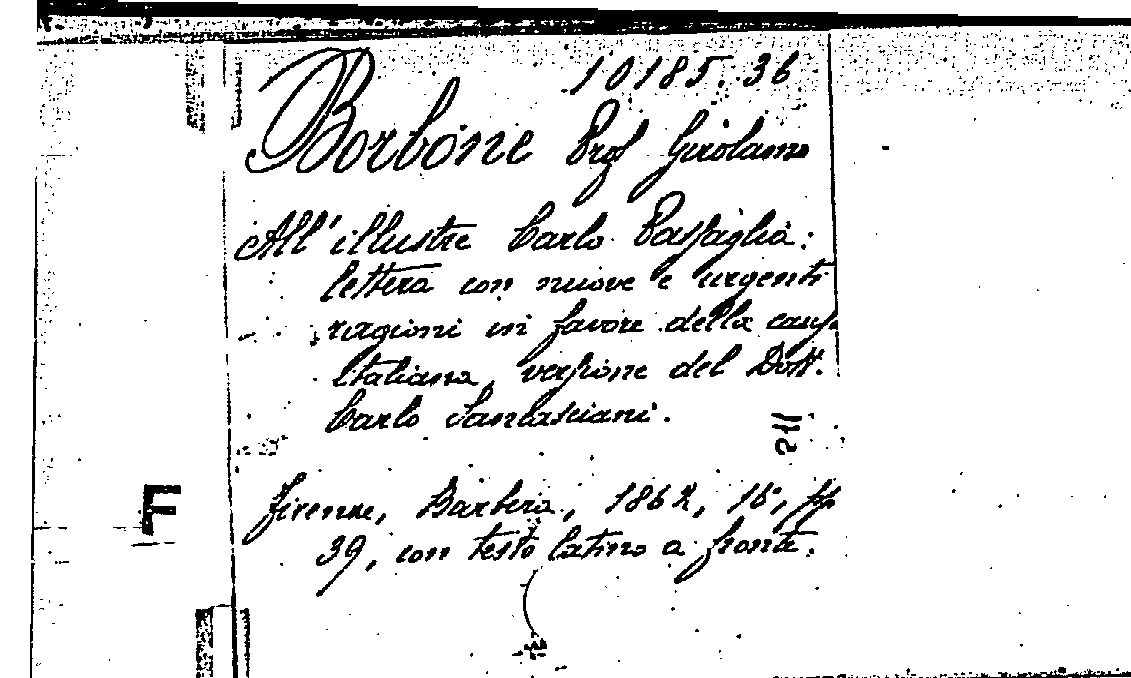 10185.36
Borbone Prof Girolamo
All'illustre Carlo Passaglia:
lettera con nuove e urgenti
ragioni in favore della causa
Italiana, versione del Dott.
Carlo
F
Firenze, Barbera, 1862, 16°, pp
39, con testo latino a fronte.